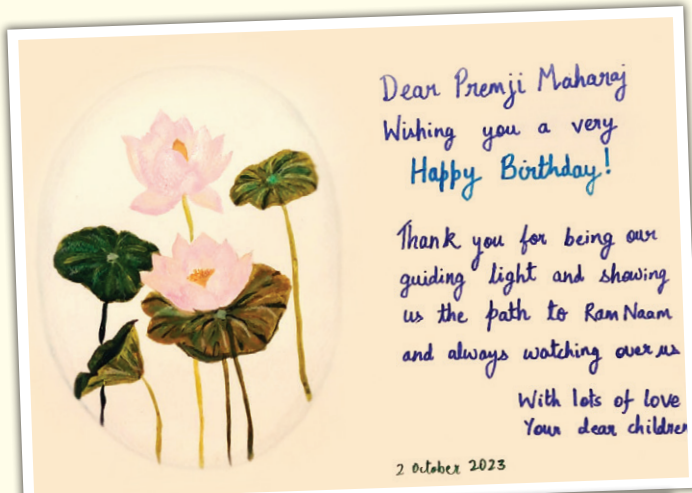 Dear Premji Maharaj
Wishing you a very
Happy Birthday!
Thank you for being our
guiding light and showing
us the path to Ram Naam
and always watching over us
With lots of love
Your dear children
2 October 2023